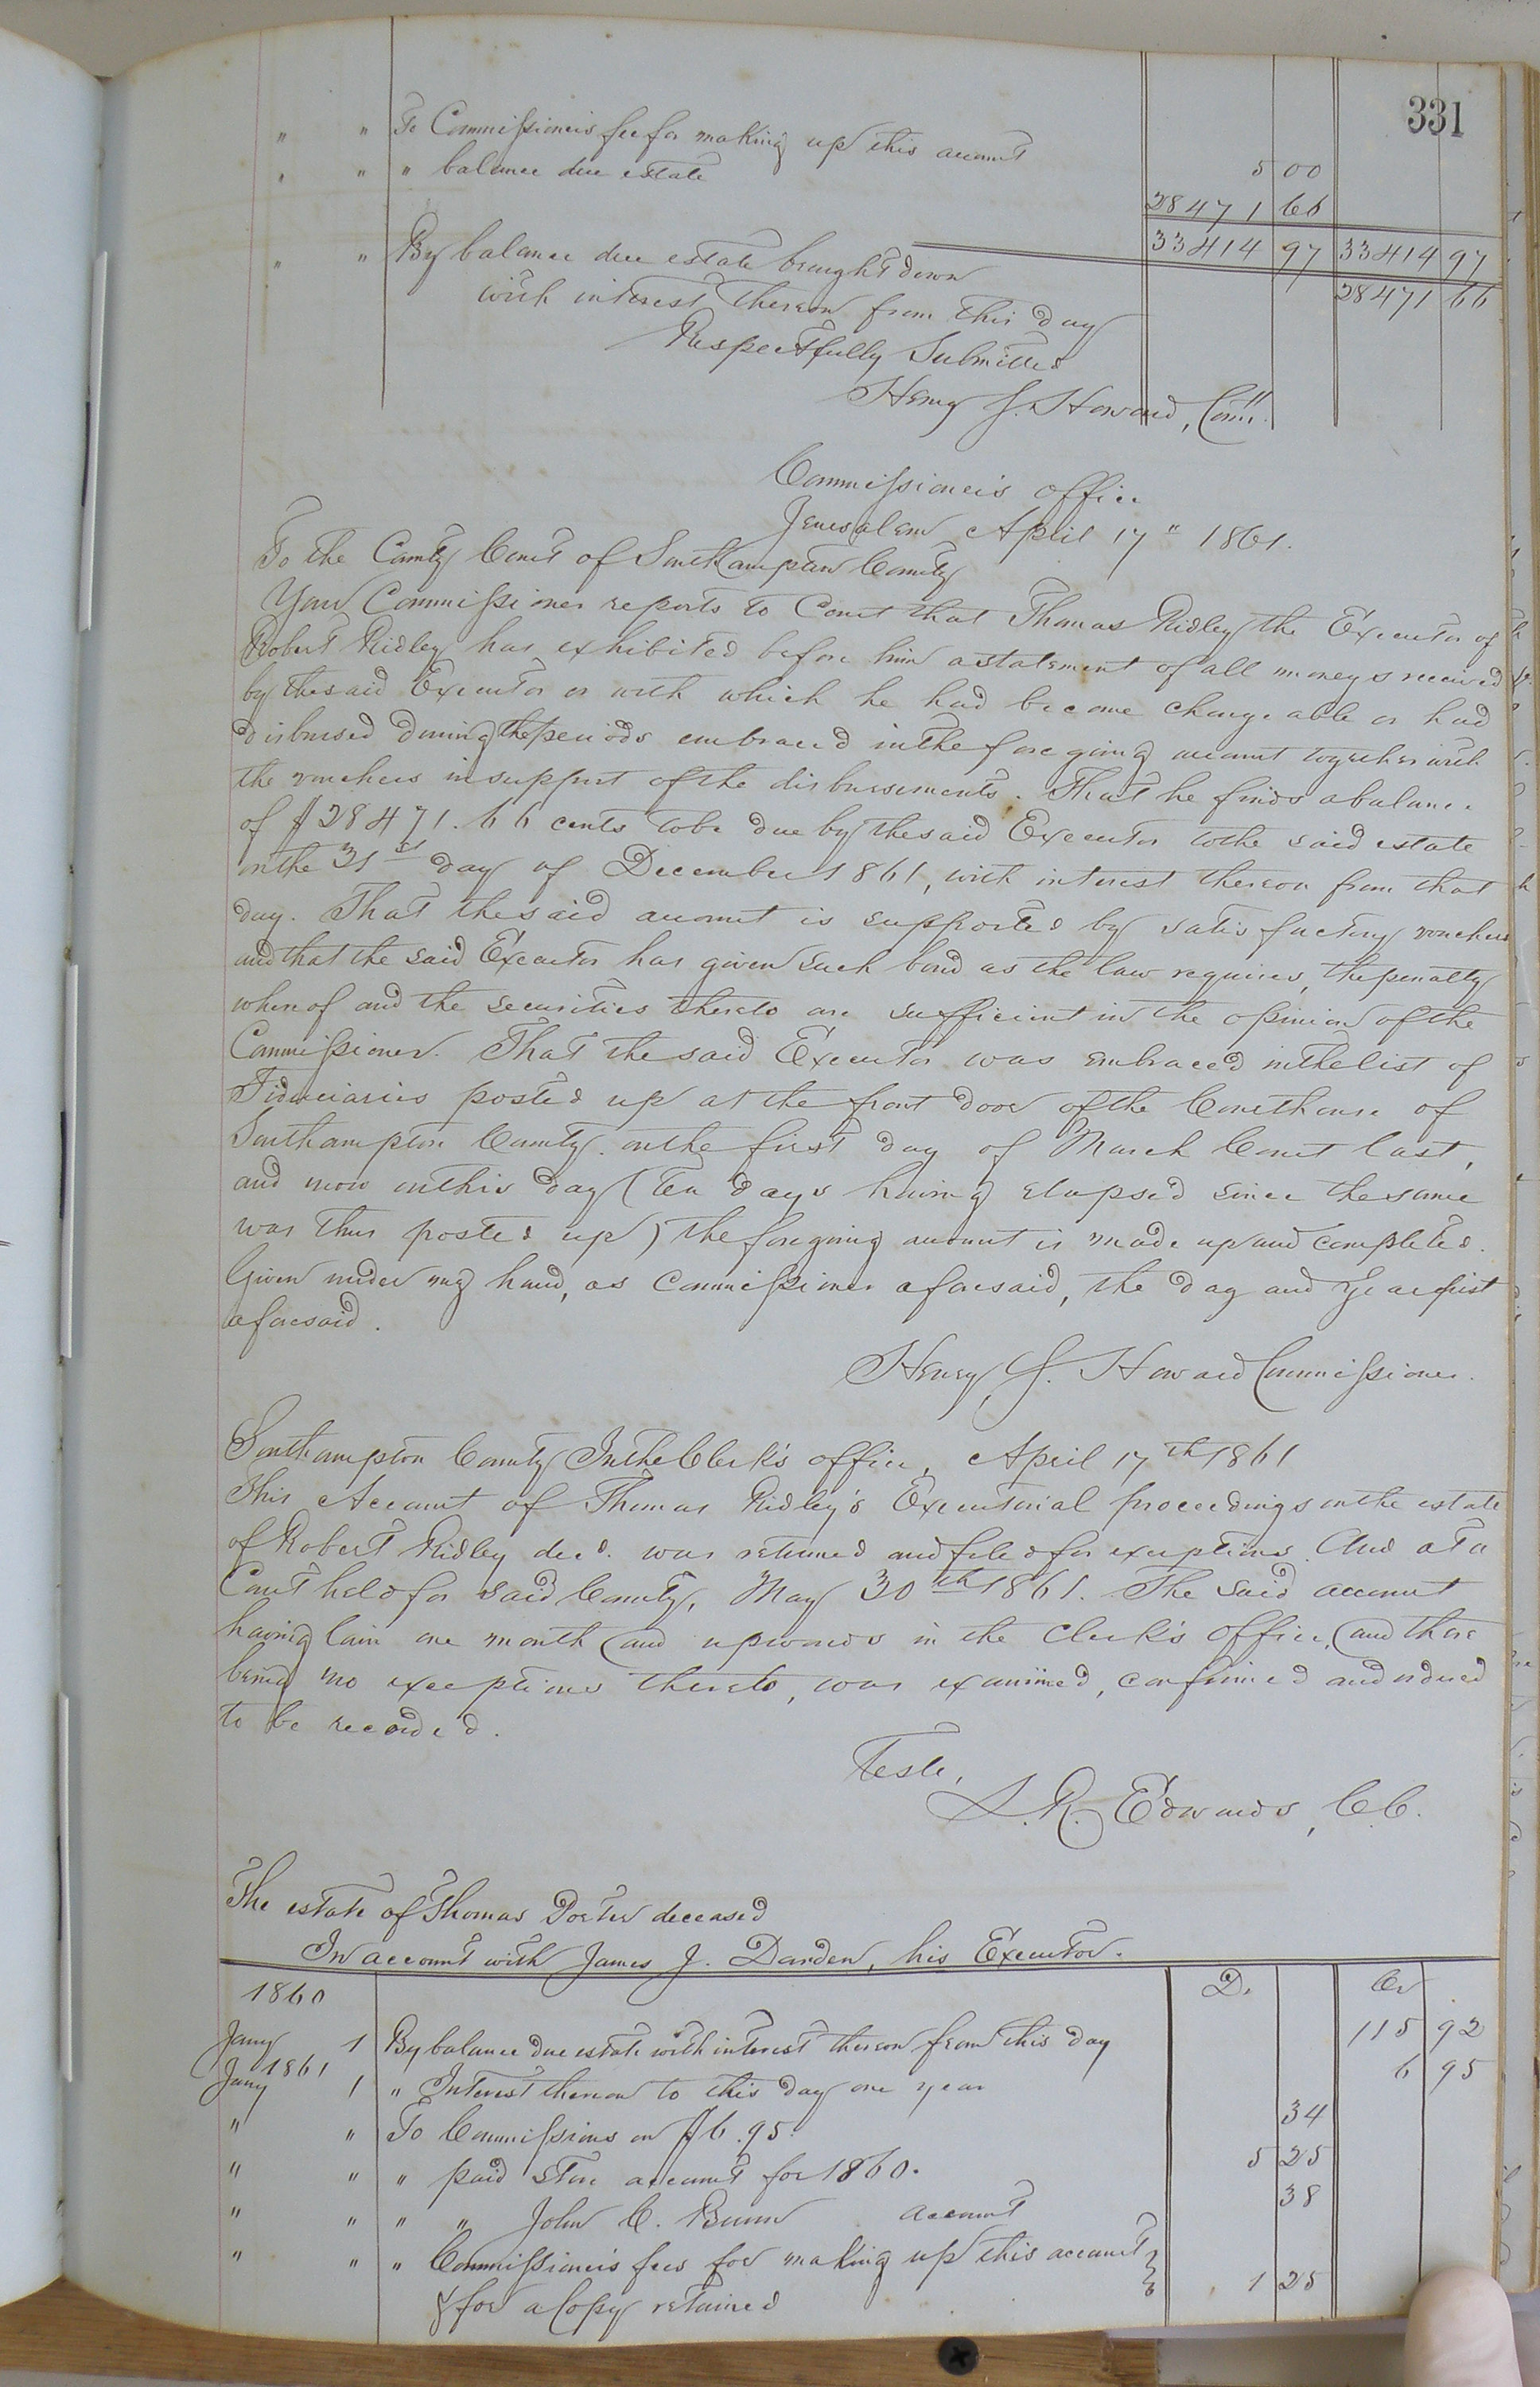 331
" " To Commissioner's fee for making up this account 5 00
" " " balance due estate 28471 66
33414 97 33414 97
" " By balance due estate brought down 28471 66
with interest thereon from this day
Respectfully Submitted
Henry J. Howard, Comr.
Commissioner's office
Jerusalem April 17" 1861.
To the County Court of Southampton County
Your Commissioner reports to Court that Thomas Ridley the Executor of
Robert Ridley has exhibited before him a statement of all moneys received
by the said Executor or with which he had become chargeable or had
disbursed during the periods embraced in the foregoing account together with
the vouchers in support of the disbursements. That he finds a balance
of $28471.66 cents to be due by the said Executor to the said estate
on the 31st day of December 1861, with interest thereon from that
day. That the said account is supported by satisfactory vouchers
and that the said Executor has given such bond as the law requires, the penalty
whereof and the securities thereto are sufficient in the opinion of the
Commissioner. That the said Executor was embraced in the list of
Fiduciaries posted up at the front door of the Courthouse of
Southampton County. on the first day of March Court last,
and now on this day (ten days having elapsed since the same
was thus posted up) the foregoing account is made up and completed.
Given under my hand, as commissioner aforesaid, the day and year first
aforesaid.
Henry J. Howard Commissioner.
Southampton County In the Clerk's office, April 17th 1861
This Account of Thomas Ridley's Executorial proceedings on the estate
of Robert Ridley decd. was returned and filed for exceptions. And at a
Court held for said County, May 30th 1861. The said account
having lain one month (and upwards in the Clerk's office, (and there
being no exceptions thereto, was examined, confirmed and ordered
to be recorded.
Teste,
L. R. Edwards, C.C.
The estate of Thomas Porter deceased
In account with James J. Darden, his Executor.
1860 Dr Cr
Jany 1 By balance due estate with interest thereon from this day 115 92
1861
Jany 1 " Interest thereon to this day one year 6 95
" " To Commissions on $6.95. 34
" " " paid store account for 1860. 5 25
" " " " John C. Bunn account 38
" " " Commissioner's fees for making up this account
& for a Copy retained 1 25